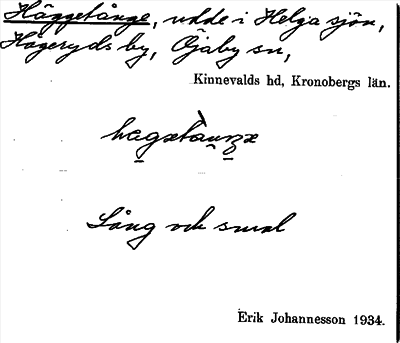 Häggetånge, udde i Helga sjön,
Hägeryds by, Öjaby sn,
Kinnevalds hd, Kronobergs län.
Lång och smal
Erik Johannesson 1934.